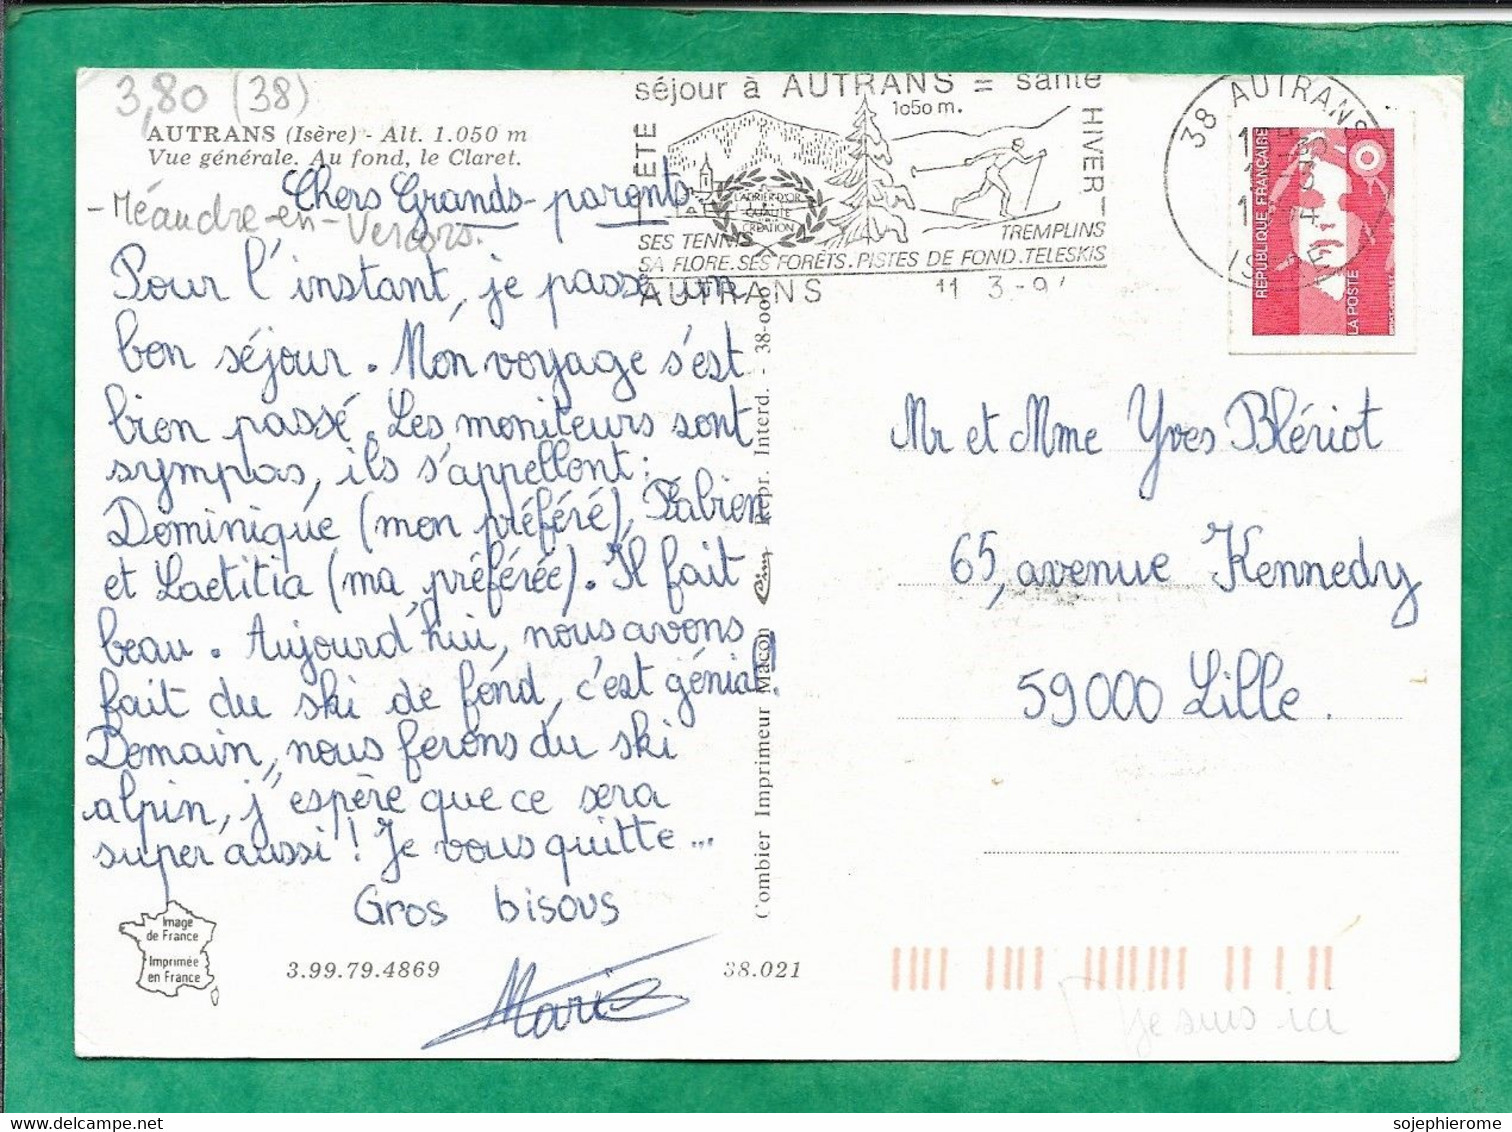 3,80 (38)
AUTRANS (Isère) - Alt. 1.050 m
Vue générale. Au fond, le Claret.
séjour à AUTRANS = santé
1050 m.
ÉTÉ
HIVER
LAURIER D'OR
QUALITÉ
CRÉATION
SES TENNIS
TREMPLINS
SA FLORE. SES FORÊTS. PISTES DE FOND. TELESKIS
AUTRANS
11 3 -9
38 AUTRANS
ISÈRE
REPUBLIQUE FRANÇAISE
LA POSTE
Chers Grands-parents.
- Méaudre-en-Vercors.
Pour l'instant, je passe un
bon séjour. Mon voyage s'est
bien passé. Les moniteurs sont
sympas, ils s'appellent:
Dominique (mon préféré), Fabien
et Laetitia (ma préférée). Il fait
beau. Aujourd'hui, nous avons
fait du ski de fond, c'est génial!
Demain, nous ferons du ski
alpin, j'espère que ce sera
super aussi! Je vous quitte...
Gros bisous
Marie
Image
de France
Imprimée
en France
3.99.79.4869
38.021
Combier Imprimeur Macon Cim Repr. Interd. - 38-000
Mr et Mme Yves Blériot
65, avenue Kennedy
59000 Lille.
je suis ici
sojephierome